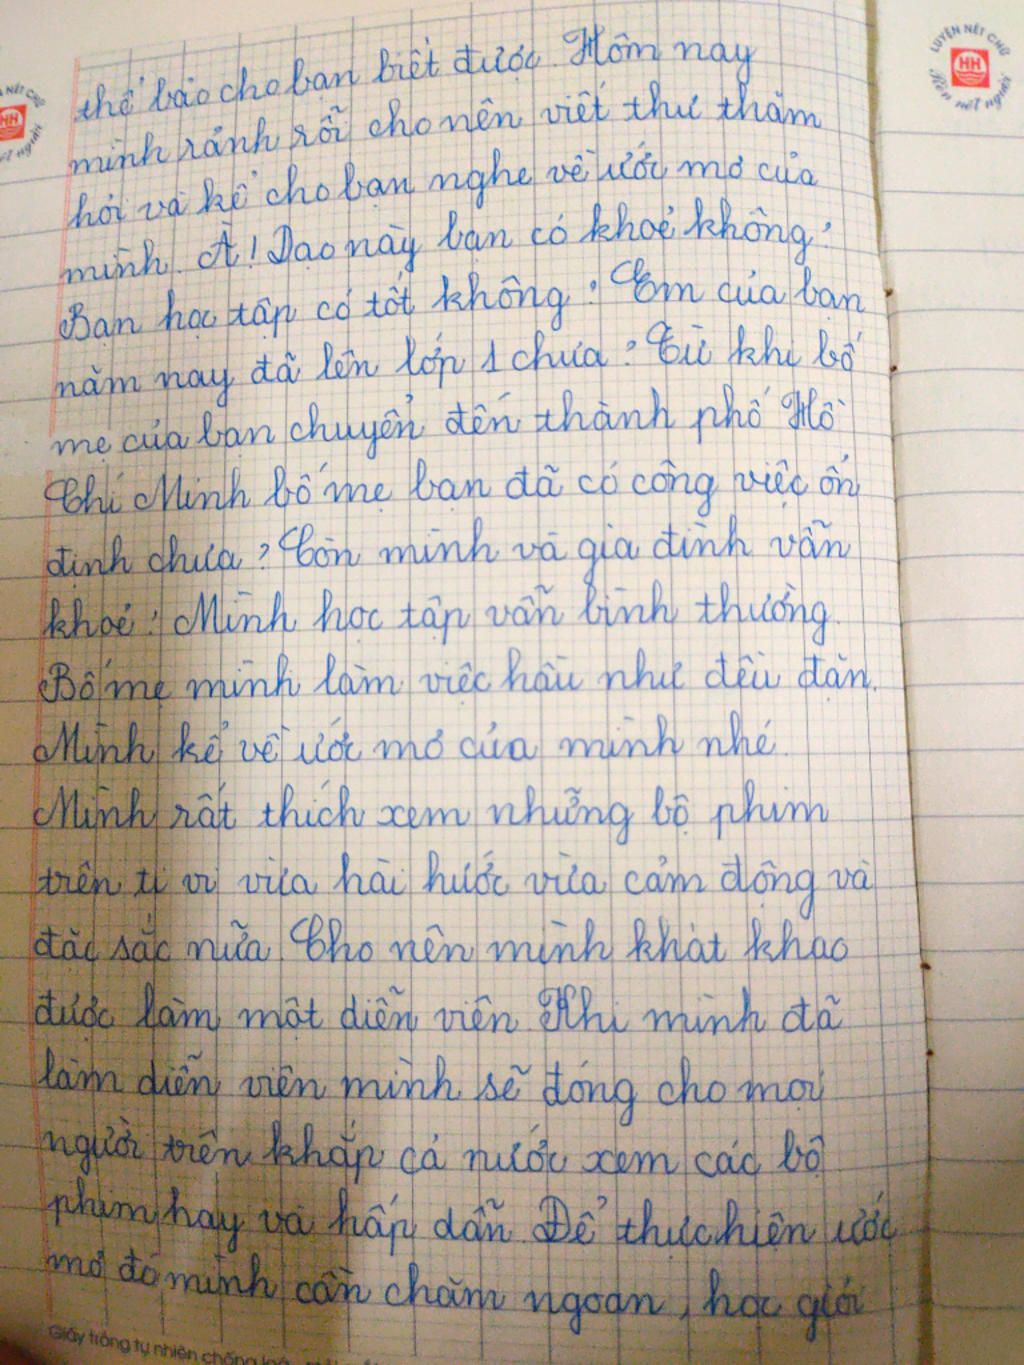 thể báo cho bạn biết được. Hôm nay
mình rảnh rỗi cho nên viết thư thăm
hỏi và kể cho bạn nghe về ước mơ của
mình. À! Dạo này bạn có khoẻ không?
Bạn học tập có tốt không? Em của bạn
năm nay đã lên lớp 1 chưa? Từ khi bố
mẹ của bạn chuyển đến thành phố Hồ
Chí Minh bố mẹ bạn đã có công việc ổn
định chưa? Còn mình và gia đình vẫn
khoẻ! Mình học tập vẫn bình thường.
Bố mẹ mình làm việc hầu như đều đặn.
Mình kể về ước mơ của mình nhé.
Mình rất thích xem những bộ phim
trên ti vi vừa hài hước vừa cảm động và
đặc sắc nữa. Cho nên mình khát khao
được làm một diễn viên. Khi mình đã
làm diễn viên mình sẽ đóng cho mọi
người trên khắp cả nước xem các bộ
phim hay và hấp dẫn. Để thực hiện ước
mơ đó mình cần chăm ngoan, học giỏi
LUYỆN NÉT CHỮ
HH
Rèn nết người
HH
Giấy trắng tự nhiên chống